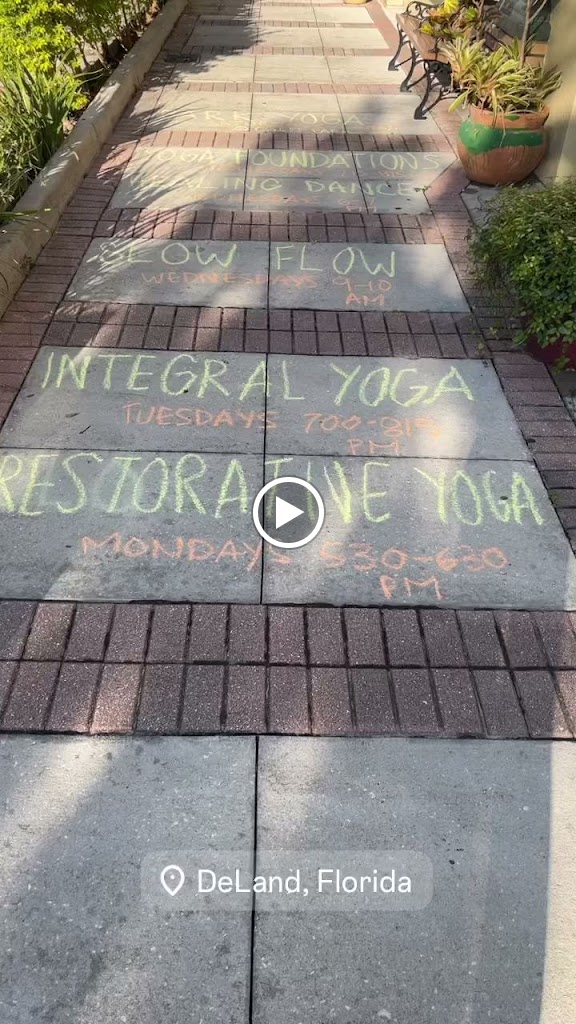 YOGA
YOGA FOUNDATIONS
HEALING DANCE
SLOW FLOW
WEDNESDAYS 9-10
AM
INTEGRAL YOGA
TUESDAYS 700-815
PM
RESTORATIVE YOGA
MONDAYS 530-630
PM
DeLand, Florida